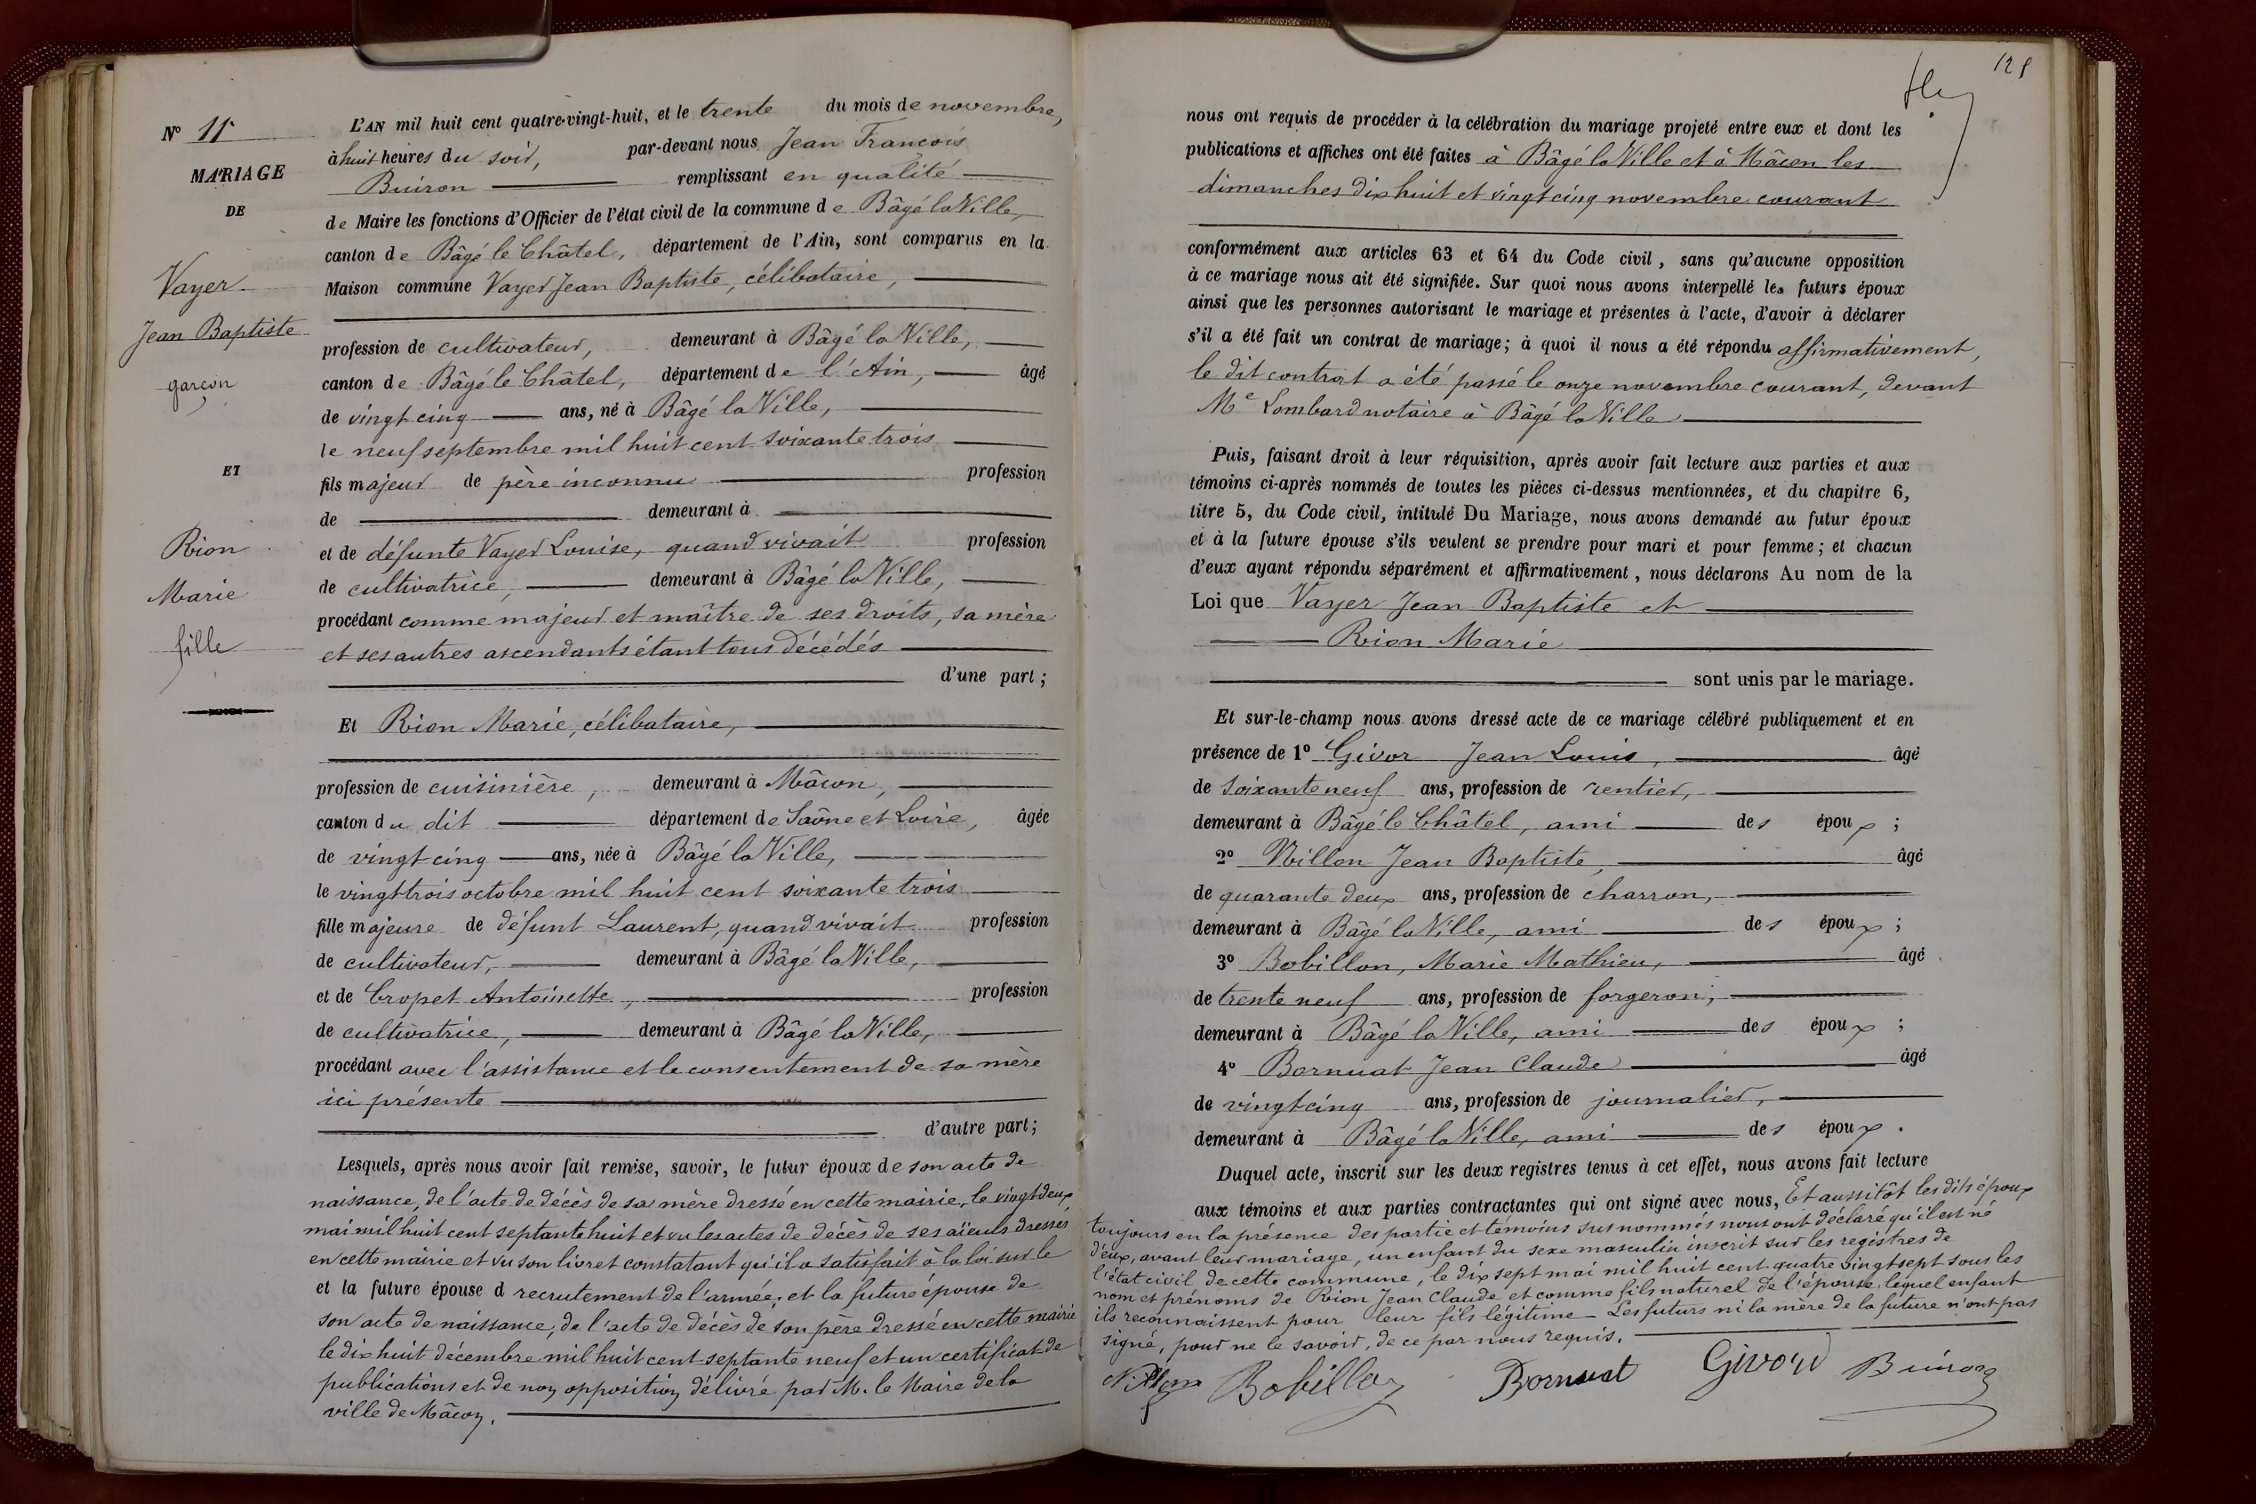 N° 11
MARIAGE
DE
Vayer
Jean Baptiste
garçon
ET
Rion
Marie
fille
L'AN mil huit cent quatre-vingt-huit, et le trente du mois de novembre,
à huit heures du soir, par-devant nous Jean François
Buiron remplissant en qualité
de Maire les fonctions d'Officier de l'état civil de la commune de Bâgé la Ville,
canton de Bâgé le Châtel, département de l'Ain, sont comparus en la
Maison commune Vayer Jean Baptiste, célibataire,
profession de cultivateur, demeurant à Bâgé la Ville,
canton de Bâgé le Châtel, département de l'Ain, âgé
de vingt cinq ans, né à Bâgé la Ville,
le neuf septembre mil huit cent soixante trois
fils majeur de père inconnu profession
de demeurant à
et de défunte Vayer Louise, quand vivait profession
de cultivatrice, demeurant à Bâgé la Ville,
procédant comme majeur et maître de ses droits, sa mère
et ses autres ascendants étant tous décédés
d'une part;
Et Rion Marie, célibataire,
profession de cuisinière, demeurant à Mâcon,
canton du dit département de Saône et Loire, âgée
de vingt cinq ans, née à Bâgé la Ville,
le vingt trois octobre mil huit cent soixante trois
fille majeure de défunt Laurent, quand vivait profession
de cultivateur, demeurant à Bâgé la Ville,
et de Cropet Antoinette, profession
de cultivatrice, demeurant à Bâgé la Ville,
procédant avec l'assistance et le consentement de sa mère
ici présente
d'autre part;
Lesquels, après nous avoir fait remise, savoir, le futur époux de son acte de
naissance, de l'acte de décès de sa mère dressé en cette mairie, le vingt deux
mai mil huit cent septante huit et vu les actes de décès de ses aïeuls dressés
en cette mairie et vu son livret constatant qu'il a satisfait à la loi sur le
et la future épouse d recrutement de l'armée; et la future épouse de
son acte de naissance, de l'acte de décès de son père dressé en cette mairie
le dix huit décembre mil huit cent septante neuf et un certificat de
publications et de non opposition délivré par M. le Maire de la
ville de Mâcon.
nous ont requis de procéder à la célébration du mariage projeté entre eux et dont les
publications et affiches ont été faites à Bâgé la Ville et à Mâcon les
dimanches dix huit et vingt cinq novembre courant
conformément aux articles 63 et 64 du Code civil, sans qu'aucune opposition
à ce mariage nous ait été signifiée. Sur quoi nous avons interpellé les futurs époux
ainsi que les personnes autorisant le mariage et présentes à l'acte, d'avoir à déclarer
s'il a été fait un contrat de mariage; à quoi il nous a été répondu affirmativement,
le dit contrat a été passé le onze novembre courant, devant
Me Lombard notaire à Bâgé la Ville
Puis, faisant droit à leur réquisition, après avoir fait lecture aux parties et aux
témoins ci-après nommés de toutes les pièces ci-dessus mentionnées, et du chapitre 6,
titre 5, du Code civil, intitulé Du Mariage, nous avons demandé au futur époux
et à la future épouse s'ils veulent se prendre pour mari et pour femme; et chacun
d'eux ayant répondu séparément et affirmativement, nous déclarons Au nom de la
Loi que Vayer Jean Baptiste et
Rion Marie
sont unis par le mariage.
Et sur-le-champ nous avons dressé acte de ce mariage célébré publiquement et en
présence de 1° Givor Jean Louis, âgé
de soixante neuf ans, profession de rentier,
demeurant à Bâgé le Châtel, ami des époux;
2° Nillon Jean Baptiste, âgé
de quarante deux ans, profession de charron,
demeurant à Bâgé la Ville, ami des époux;
3° Bobillon, Marie Mathieu, âgé
de trente neuf ans, profession de forgeron,
demeurant à Bâgé la Ville, ami des époux;
4° Bornuat Jean Claude âgé
de vingt cinq ans, profession de journalier,
demeurant à Bâgé la Ville, ami des époux.
Duquel acte, inscrit sur les deux registres tenus à cet effet, nous avons fait lecture
aux témoins et aux parties contractantes qui ont signé avec nous, Et aussitôt les dits époux
toujours en la présence des partie et témoins sus nommés nous ont déclaré qu'il est né
d'eux, avant leur mariage, un enfant du sexe masculin inscrit sur les registres de
l'état civil de cette commune, le dix sept mai mil huit cent quatre vingt sept sous les
nom et prénoms de Rion Jean Claude et comme fils naturel de l'épouse, lequel enfant
ils reconnaissent pour leur fils légitime - Les futurs ni la mère de la future n'ont pas
signé, pour ne le savoir, de ce par nous requis.
Nillon Bobillon Bornuat Givord Buiron